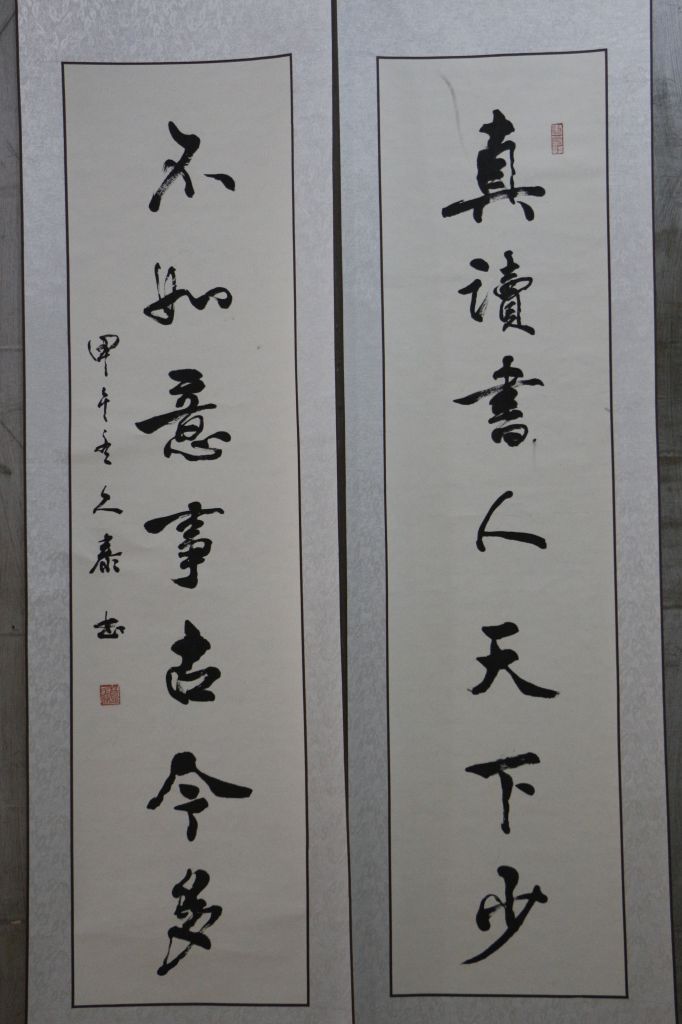 真讀書人天下少
不如意事古今多
甲午冬久泰书